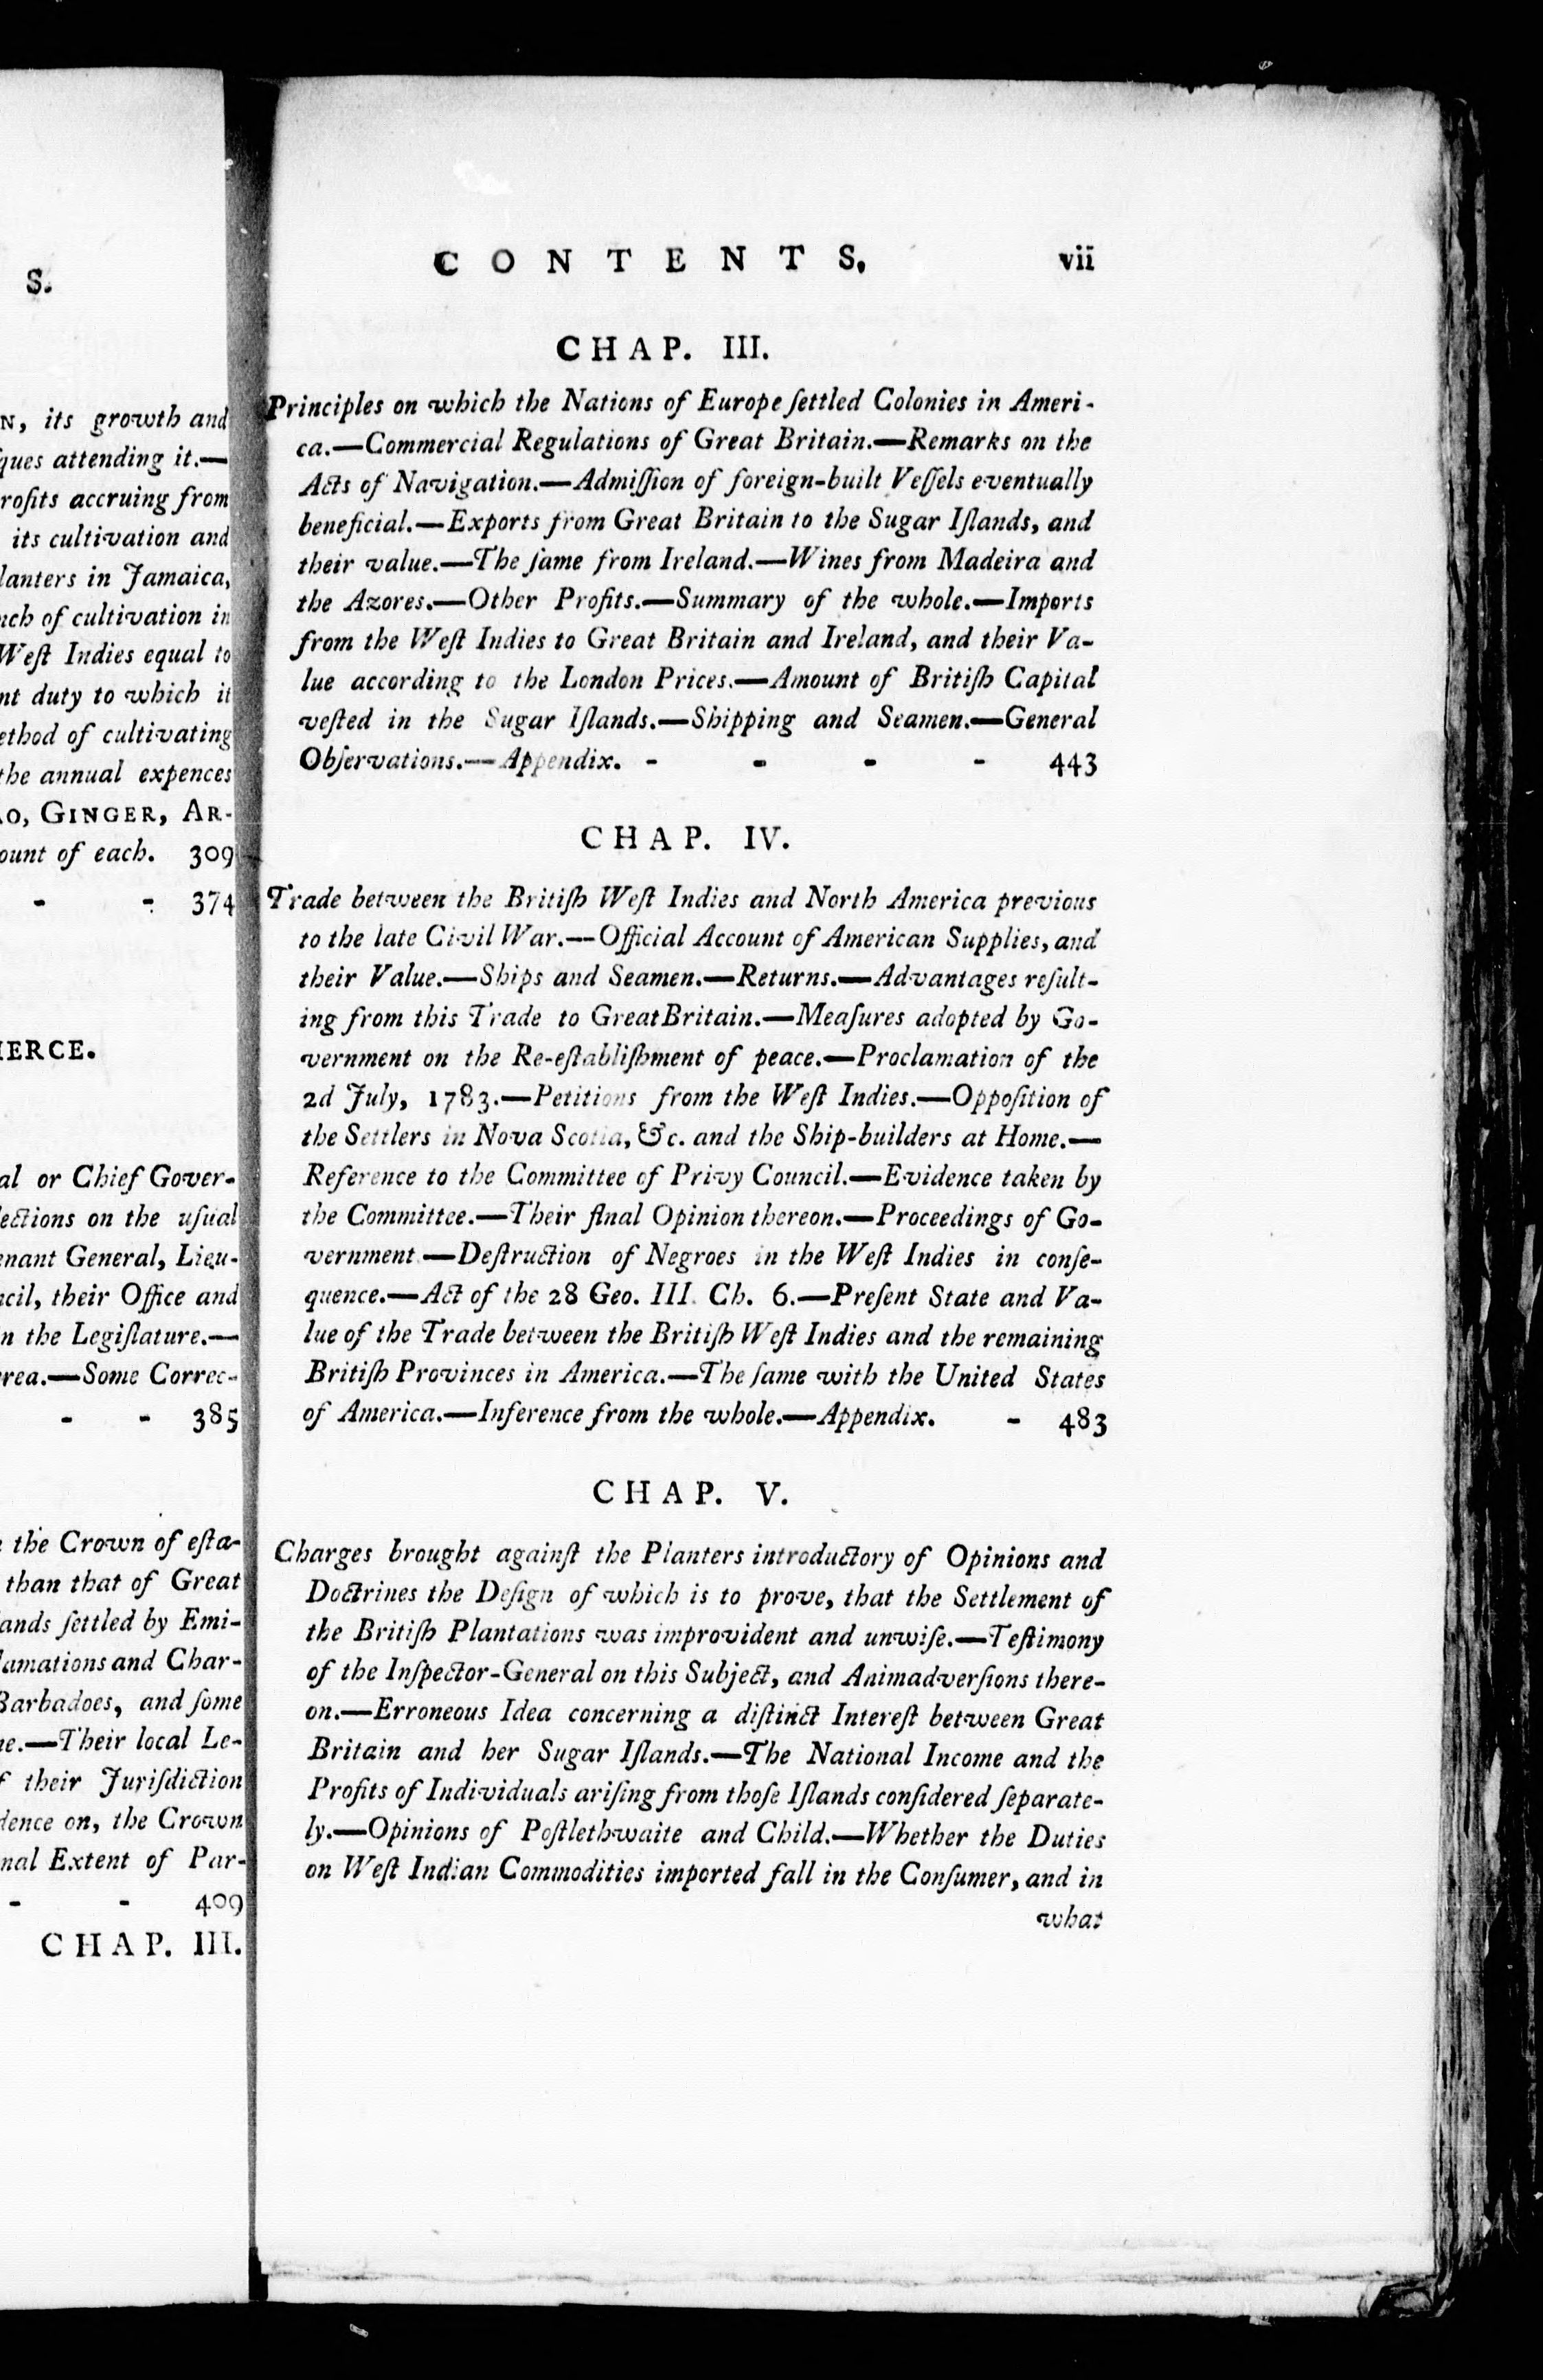 S.
N, its growth and
ques attending it.—
rofits accruing from
its cultivation and
lanters in Jamaica,
nch of cultivation in
Weſt Indies equal to
nt duty to which it
ethod of cultivating
the annual expences
AO, GINGER, AR-
ount of each. 309
- - 374
IERCE.
al or Chief Gover-
lections on the uſual
enant General, Lieu-
ncil, their Office and
n the Legiſlature.—
rea.—Some Correc-
- - 385
the Crown of eſta-
than that of Great
ands ſettled by Emi-
lamations and Char-
Barbadoes, and ſome
ne.—Their local Le-
f their Juriſdiction
dence on, the Crown
nal Extent of Par-
- - 409
CHAP. III.
CONTENTS. vii
CHAP. III.
Principles on which the Nations of Europe ſettled Colonies in Ameri-
ca.—Commercial Regulations of Great Britain.—Remarks on the
Acts of Navigation.—Admiſſion of foreign-built Veſſels eventually
beneficial.—Exports from Great Britain to the Sugar Iſlands, and
their value.—The ſame from Ireland.—Wines from Madeira and
the Azores.—Other Profits.—Summary of the whole.—Imports
from the Weſt Indies to Great Britain and Ireland, and their Va-
lue according to the London Prices.—Amount of Britiſh Capital
veſted in the Sugar Iſlands.—Shipping and Seamen.—General
Obſervations.—Appendix. - - - - 443
CHAP. IV.
Trade between the Britiſh Weſt Indies and North America previous
to the late Civil War.—Official Account of American Supplies, and
their Value.—Ships and Seamen.—Returns.—Advantages reſult-
ing from this Trade to Great Britain.—Meaſures adopted by Go-
vernment on the Re-eſtabliſhment of peace.—Proclamation of the
2d July, 1783.—Petitions from the Weſt Indies.—Oppoſition of
the Settlers in Nova Scotia, &c. and the Ship-builders at Home.—
Reference to the Committee of Privy Council.—Evidence taken by
the Committee.—Their final Opinion thereon.—Proceedings of Go-
vernment.—Deſtruction of Negroes in the Weſt Indies in conſe-
quence.—Act of the 28 Geo. III. Ch. 6.—Preſent State and Va-
lue of the Trade between the Britiſh Weſt Indies and the remaining
Britiſh Provinces in America.—The ſame with the United States
of America.—Inference from the whole.—Appendix. - 483
CHAP. V.
Charges brought againſt the Planters introductory of Opinions and
Doctrines the Deſign of which is to prove, that the Settlement of
the Britiſh Plantations was improvident and unwiſe.—Teſtimony
of the Inſpector-General on this Subject, and Animadverſions there-
on.—Erroneous Idea concerning a diſtinct Intereſt between Great
Britain and her Sugar Iſlands.—The National Income and the
Profits of Individuals ariſing from thoſe Iſlands conſidered ſeparate-
ly.—Opinions of Poſtlethwaite and Child.—Whether the Duties
on Weſt Indian Commodities imported fall in the Conſumer, and in
what